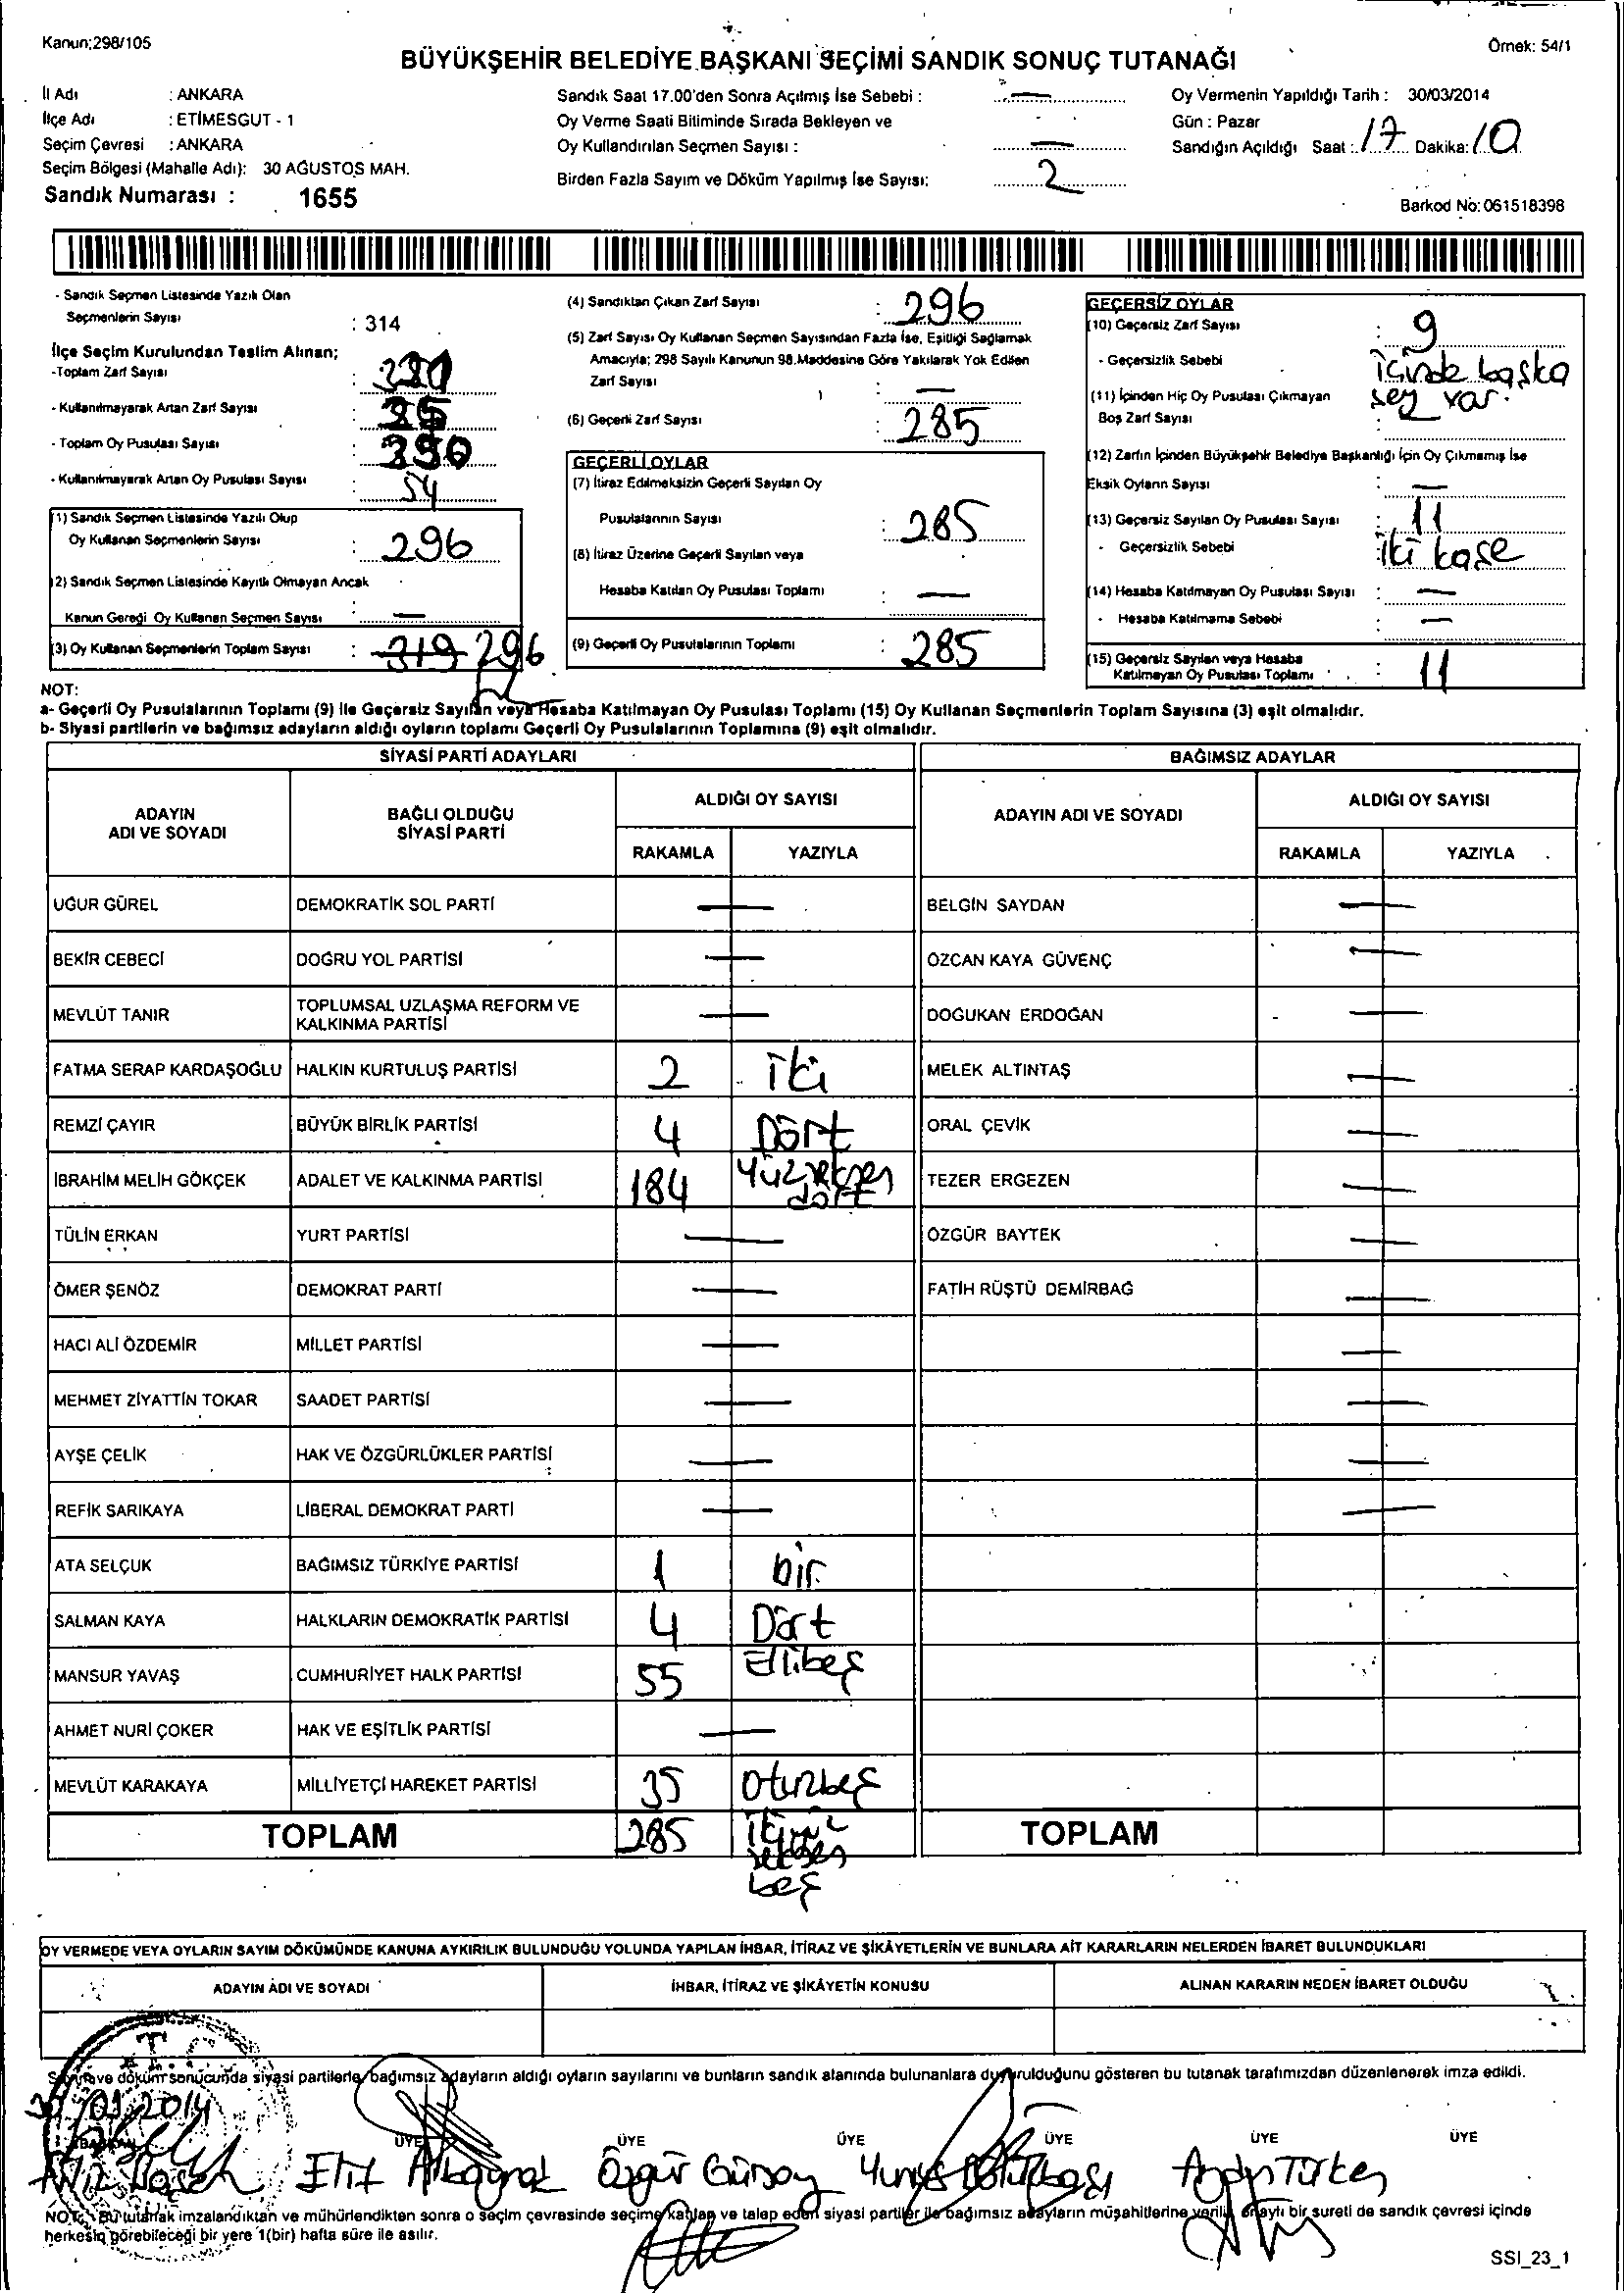 Kanun;298/105
Örnek: 54/1
BÜYÜKŞEHİR BELEDİYE BAŞKANI SEÇİMİ SANDIK SONUÇ TUTANAĞI
İl Adı : ANKARA
İlçe Adı : ETİMESGUT - 1
Seçim Çevresi : ANKARA
Seçim Bölgesi (Mahalle Adı): 30 AĞUSTOS MAH.
Sandık Numarası : 1655
Sandık Saat 17.00'den Sonra Açılmış İse Sebebi : —
Oy Verme Saati Bitiminde Sırada Bekleyen ve
Oy Kullandırılan Seçmen Sayısı : —
Birden Fazla Sayım ve Döküm Yapılmış İse Sayısı: 2
Oy Vermenin Yapıldığı Tarih : 30/03/2014
Gün : Pazar
Sandığın Açıldığı Saat : 17 Dakika: 10
Barkod No: 061518398
- Sandık Seçmen Listesinde Yazılı Olan
Seçmenlerin Sayısı : 314
İlçe Seçim Kurulundan Teslim Alınan;
-Toplam Zarf Sayısı :
- Kullanılmayarak Artan Zarf Sayısı :
- Toplam Oy Pusulası Sayısı : 350
- Kullanılmayarak Artan Oy Pusulası Sayısı : 54
(1) Sandık Seçmen Listesinde Yazılı Olup
Oy Kullanan Seçmenlerin Sayısı : 296
(2) Sandık Seçmen Listesinde Kayıtlı Olmayan Ancak
Kanun Gereği Oy Kullanan Seçmen Sayısı : —
(3) Oy Kullanan Seçmenlerin Toplam Sayısı : 319 296
(4) Sandıktan Çıkan Zarf Sayısı : 296
(5) Zarf Sayısı Oy Kullanan Seçmen Sayısından Fazla İse, Eşitliği Sağlamak
Amacıyla; 298 Sayılı Kanunun 98.Maddesine Göre Yakılarak Yok Edilen
Zarf Sayısı : —
(6) Geçerli Zarf Sayısı : 285
GEÇERLİ OYLAR
(7) İtiraz Edilmeksizin Geçerli Sayılan Oy
Pusulalarının Sayısı : 285
(8) İtiraz Üzerine Geçerli Sayılan veya
Hesaba Katılan Oy Pusulası Toplamı : —
(9) Geçerli Oy Pusulalarının Toplamı : 285
GEÇERSİZ OYLAR
(10) Geçersiz Zarf Sayısı : 9
- Geçersizlik Sebebi : içinde başka
şey var.
(11) İçinden Hiç Oy Pusulası Çıkmayan
Boş Zarf Sayısı :
(12) Zarfın İçinden Büyükşehir Belediye Başkanlığı İçin Oy Çıkmamış İse
Eksik Oyların Sayısı : —
(13) Geçersiz Sayılan Oy Pusulası Sayısı : 11
- Geçersizlik Sebebi : iki kaşe
(14) Hesaba Katılmayan Oy Pusulası Sayısı : —
- Hesaba Katılmama Sebebi : —
(15) Geçersiz Sayılan veya Hesaba
Katılmayan Oy Pusulası Toplamı : 11
NOT:
a- Geçerli Oy Pusulalarının Toplamı (9) ile Geçersiz Sayılan veya Hesaba Katılmayan Oy Pusulası Toplamı (15) Oy Kullanan Seçmenlerin Toplam Sayısına (3) eşit olmalıdır.
b- Siyasi partilerin ve bağımsız adayların aldığı oyların toplamı Geçerli Oy Pusulalarının Toplamına (9) eşit olmalıdır.
SİYASİ PARTİ ADAYLARI
BAĞIMSIZ ADAYLAR
ADAYIN ADI VE SOYADI
BAĞLI OLDUĞU SİYASİ PARTİ
ALDIĞI OY SAYISI
RAKAMLA YAZIYLA
ADAYIN ADI VE SOYADI
ALDIĞI OY SAYISI
RAKAMLA YAZIYLA
UĞUR GÜREL DEMOKRATİK SOL PARTİ — BELGİN SAYDAN —
BEKİR CEBECİ DOĞRU YOL PARTİSİ — ÖZCAN KAYA GÜVENÇ —
MEVLÜT TANIR TOPLUMSAL UZLAŞMA REFORM VE KALKINMA PARTİSİ — DOĞUKAN ERDOĞAN —
FATMA SERAP KARDAŞOĞLU HALKIN KURTULUŞ PARTİSİ 2 iki MELEK ALTINTAŞ —
REMZİ ÇAYIR BÜYÜK BİRLİK PARTİSİ 4 Dört ORAL ÇEVİK —
İBRAHİM MELİH GÖKÇEK ADALET VE KALKINMA PARTİSİ 184 yüzseksen dört TEZER ERGEZEN —
TÜLİN ERKAN YURT PARTİSİ — ÖZGÜR BAYTEK —
ÖMER ŞENÖZ DEMOKRAT PARTİ — FATİH RÜŞTÜ DEMİRBAĞ —
HACI ALİ ÖZDEMİR MİLLET PARTİSİ — —
MEHMET ZİYATTİN TOKAR SAADET PARTİSİ — —
AYŞE ÇELİK HAK VE ÖZGÜRLÜKLER PARTİSİ — —
REFİK SARIKAYA LİBERAL DEMOKRAT PARTİ — —
ATA SELÇUK BAĞIMSIZ TÜRKİYE PARTİSİ 1 bir
SALMAN KAYA HALKLARIN DEMOKRATİK PARTİSİ 4 Dört
MANSUR YAVAŞ CUMHURİYET HALK PARTİSİ 55 Ellibeş
AHMET NURİ ÇOKER HAK VE EŞİTLİK PARTİSİ —
MEVLÜT KARAKAYA MİLLİYETÇİ HAREKET PARTİSİ 35 Otuzbeş
TOPLAM 285 ikiyüz seksen beş TOPLAM
OY VERMEDE VEYA OYLARIN SAYIM DÖKÜMÜNDE KANUNA AYKIRILIK BULUNDUĞU YOLUNDA YAPILAN İHBAR, İTİRAZ VE ŞİKÂYETLERİN VE BUNLARA AİT KARARLARIN NELERDEN İBARET BULUNDUKLARI
ADAYIN ADI VE SOYADI İHBAR, İTİRAZ VE ŞİKÂYETİN KONUSU ALINAN KARARIN NEDEN İBARET OLDUĞU
T.C.
Sayım ve döküm sonucunda siyasi partilerle bağımsız adayların aldığı oyların sayılarını ve bunların sandık alanında bulunanlara duyurulduğunu gösteren bu tutanak tarafımızdan düzenlenerek imza edildi.
30/03/2014
BAŞKAN ÜYE ÜYE ÜYE ÜYE ÜYE ÜYE
Elif Özgür Gürsoy Yunus
NOT: Bu tutanak imzalandıktan ve mühürlendikten sonra o seçim çevresinde seçime katılan ve talep eden siyasi partiler ile bağımsız adayların müşahitlerine verilir, onaylı bir sureti de sandık çevresi içinde
herkesin görebileceği bir yere 1(bir) hafta süre ile asılır.
SSI_23_1